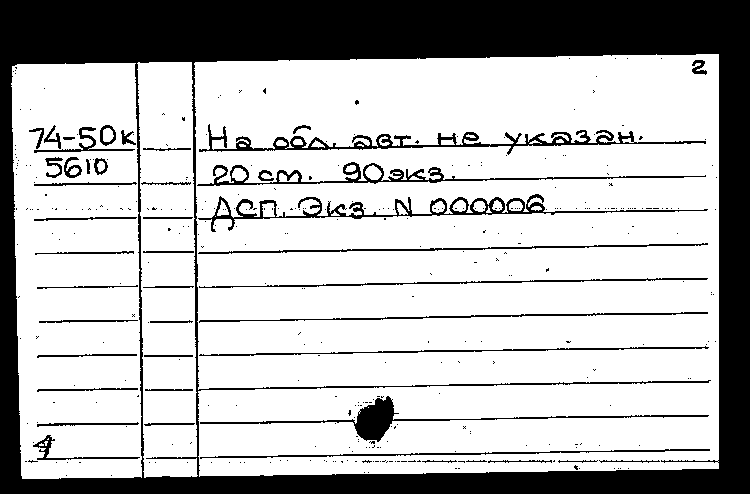 2
74-50к На обл. авт. не указан.
5610 20 см. 90 экз.
ДСП. Экз. N 000006.
4